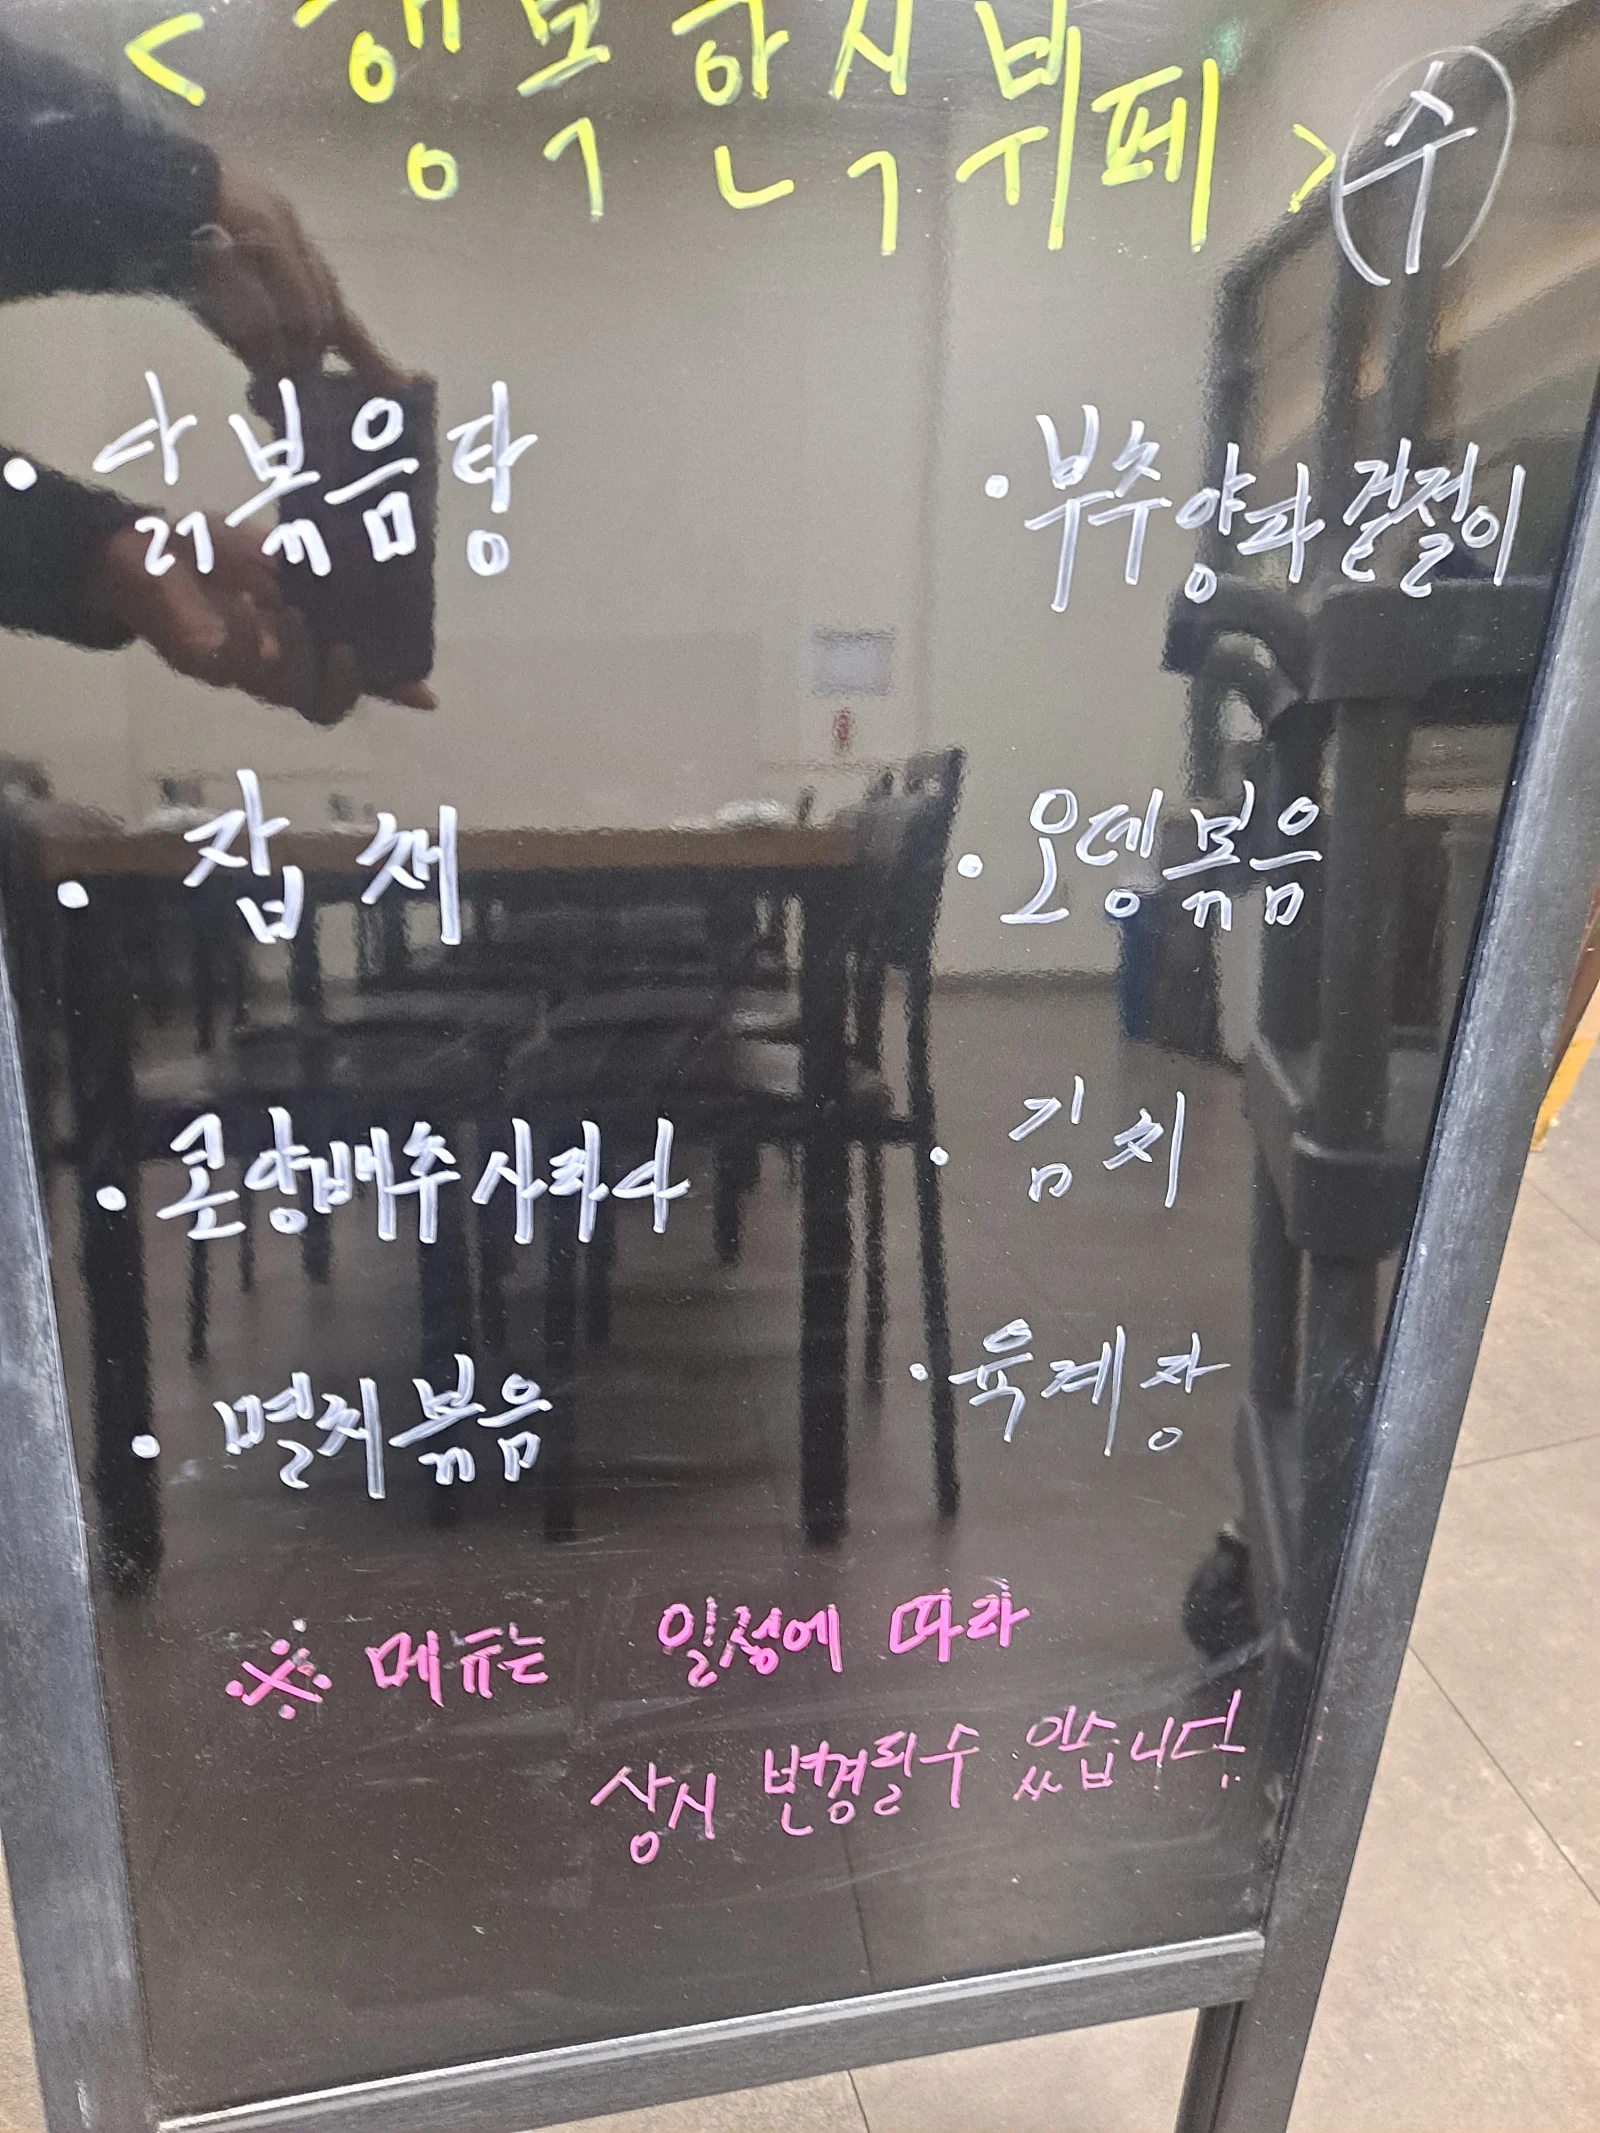 < 행복한식뷔페 > (수)
· 닭볶음탕
· 부추양파겉절이
· 잡채
· 오뎅볶음
· 콘양배추사라다
· 김치
· 멸치볶음
· 육계장
※ 메뉴는 일정에 따라
상시 변경될수 있습니다.